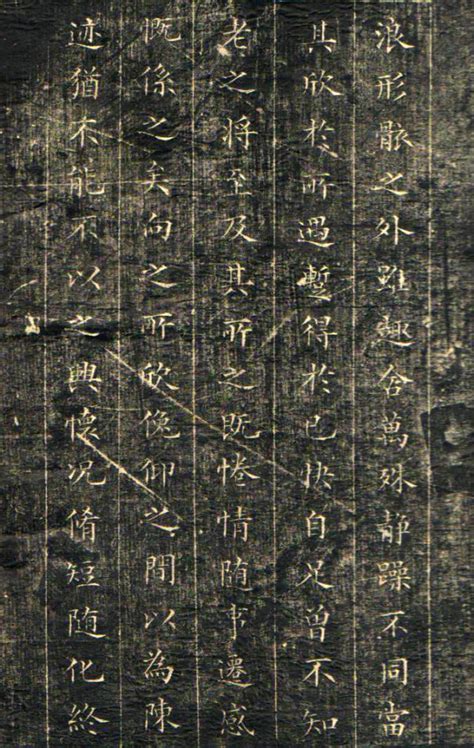 浪形骸之外雖趣舍萬殊静躁不同當
其欣於所遇蹔得於己快自足曾不知
老之将至及其所之既惓情随事遷感
慨係之矣向之所欣俛仰之間以為陳
迹猶不能不以之興懷况脩短随化終